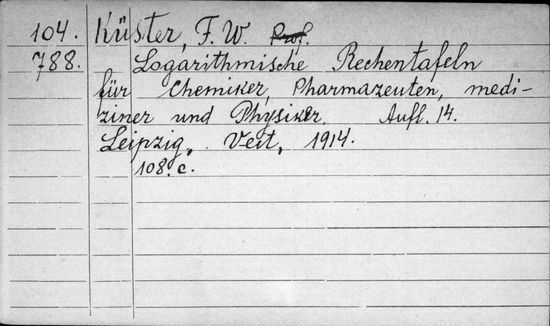 104. Küster, F. W. Prof.
788. Logarithmische Rechentafeln
für Chemiker, Pharmazeuten, medi-
ziner und Physiker. Aufl. 14.
Leipzig, Veit, 1914.
108. c.